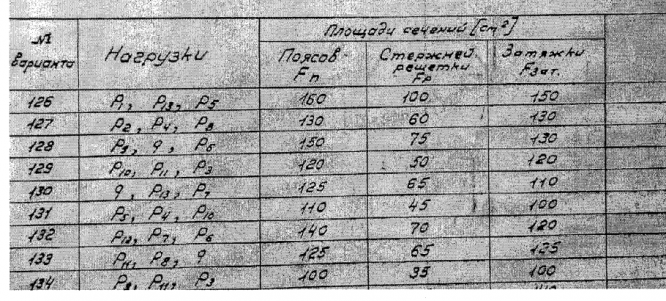 № варианта Нагрузки Площади сечений [см²]
Поясов Fп Стержней решетки Fр Затяжки Fзат.
126 P₁, P₁₃, P₅ 160 100 150
127 P₂, P₄, P₈ 130 60 130
128 P₉, q, P₆ 150 75 130
129 P₁₀, P₁₁, P₃ 120 50 120
130 q, P₁₃, P₇ 125 65 110
131 P₅, P₄, P₁₀ 110 45 100
132 P₁₂, P₇, P₆ 140 70 120
133 P₁₁, P₈, q 125 65 125
134 P₉, P₁₁, P₃ 100 35 100